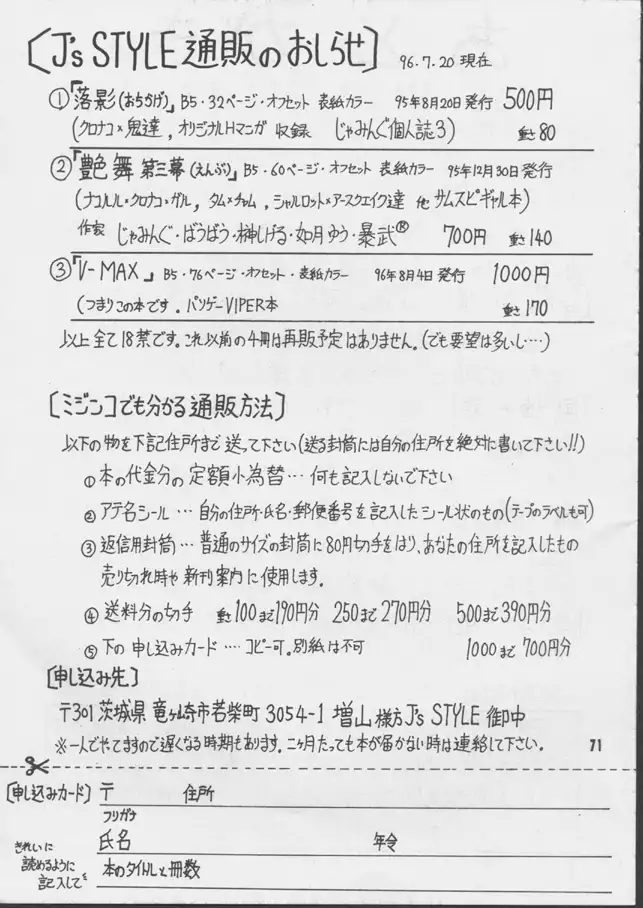 [J's STYLE 通販のおしらせ] 96.7.20 現在
①「落影(おちかげ)」 B5・32ページ・オフセット 表紙カラー 95年8月20日発行 500円
(クロナコ×鬼達, オリジナルHマンガ 収録 じゃみんぐ個人誌3) 重さ80
②「艶舞 第三幕(えんぶ)」 B5・60ページ・オフセット 表紙カラー 95年12月30日発行
(ナコルル×クロナコ×ガル, タム×チャム, シャルロット×アースクエイク達 他 サムスピギャル本)
作家 じゃみんぐ・ばうばう・榊しげる・如月ゆう・暴武® 700円 重さ140
③「V-MAX」 B5・76ページ・オフセット・表紙カラー 96年8月4日発行 1000円
(つまりこの本です。パソゲーVIPER本 重さ170
以上全て18禁です。これ以前の4冊は再販予定はありません。(でも要望は多いし…)
[ミジンコでも分かる通販方法]
以下の物を下記住所まで送って下さい(送る封筒には自分の住所を絶対に書いて下さい!!)
①本の代金分の定額小為替…何も記入しないで下さい
②アテ名シール…自分の住所・氏名・郵便番号を記入したシール状のもの(テープのラベルも可)
③返信用封筒…普通のサイズの封筒に80円切手をはり、あなたの住所を記入したもの
売り切れ時や新刊案内に使用します。
④送料分の切手 重さ100まで190円分 250まで270円分 500まで390円分
⑤下の申し込みカード…コピー可。別紙は不可 1000まで700円分
[申し込み先]
〒301 茨城県竜ヶ崎市若柴町3054-1 増山様方 J's STYLE 御中
※一人でやってますので遅くなる時期もあります。二ヶ月たっても本が届かない時は連絡して下さい。 71
[申し込みカード] 〒 住所
フリガナ
氏名 年令
きれいに
読めるように
記入してを
本のタイトルと冊数